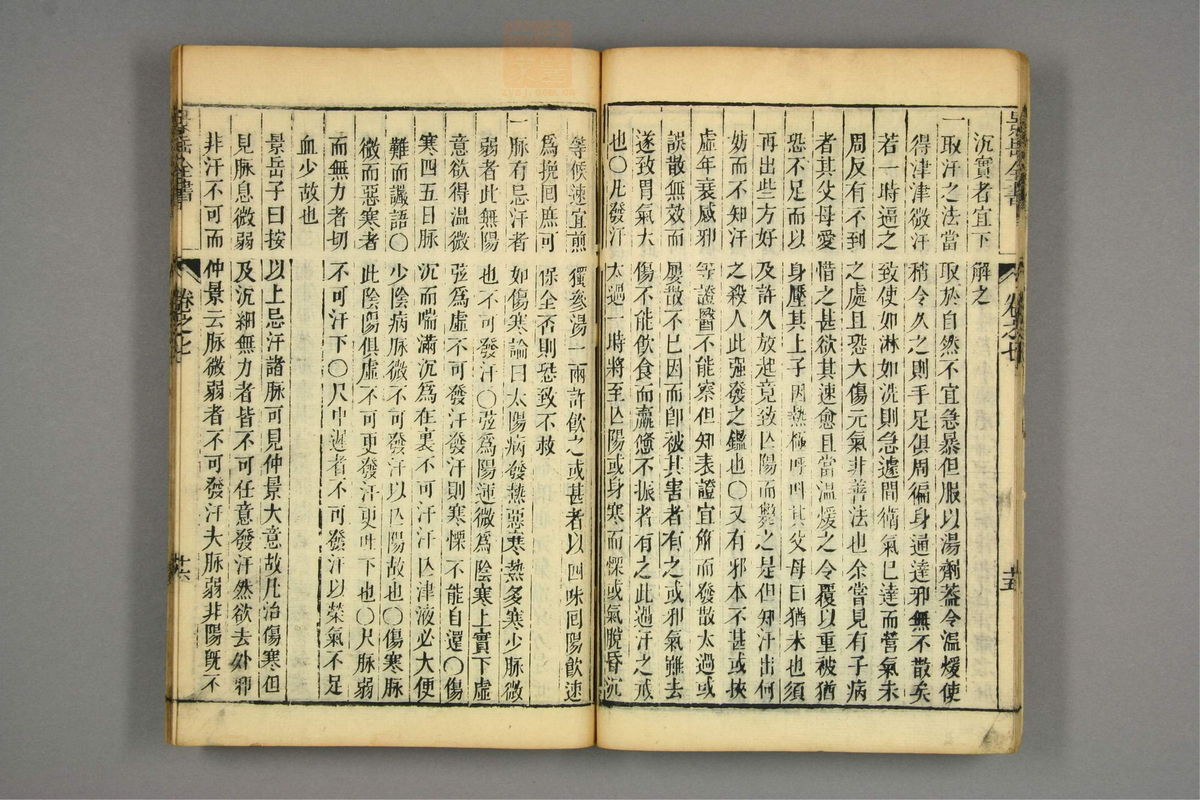 景岳全書
卷之七
廿五
沉實者宜下解之
一取汗之法當取於自然不宜急暴但服以湯劑蓋令溫煖使
得津津微汗稍令久之則手足俱周徧身通達邪無不散矣
若一時逼之致使如淋如洗則急遽間衛氣已達而營氣未
周反有不到之處且恐大傷元氣非善法也余嘗見有子病
者其父母愛惜之甚欲其速愈且當溫煖之令覆以重被猶
恐不足而以身壓其上子因熱極呼叫其父母曰猶未也須
再出些方好及許久放起竟致亾陽而斃之是但知汗出何
妨而不知汗之殺人此强發之鑑也〇又有邪本不甚或挾
虛年衰感邪等證醫不能察但知表證宜解而發散太過或
誤散無效而屢散不已因而卽被其害者有之或邪氣雖去
遂致胃氣大傷不能飲食而羸憊不振者有之此過汗之戒
也〇凡發汗太過一時將至亾陽或身寒而慄或氣脫昏沉
等候速宜煎獨參湯一兩許飲之或甚者以四味回陽飲速
爲挽回庶可保全否則恐致不救
一脉有忌汗者如傷寒論曰太陽病發熱惡寒熱多寒少脉微
弱者此無陽也不可發汗〇弦爲陽運微爲陰寒上實下虛
意欲得溫微弦爲虛不可發汗發汗則寒慄不能自還〇傷
寒四五日脉沉而喘滿沉爲在裏不可汗汗亾津液必大便
難而讝語〇少陰病脉微不可發汗以亾陽故也〇傷寒脉
微而惡寒者此陰陽俱虛不可更發汗更吐下也〇尺脉弱
而無力者切不可汗下〇尺中遲者不可發汗以榮氣不足
血少故也
景岳子曰按以上忌汗諸脉可見仲景大意故凡治傷寒但
見脉息微弱及沉細無力者皆不可任意發汗然欲去外邪
非汗不可而仲景云脉微弱者不可發汗夫脉弱非陽旣不
景岳全書
卷之七
廿六